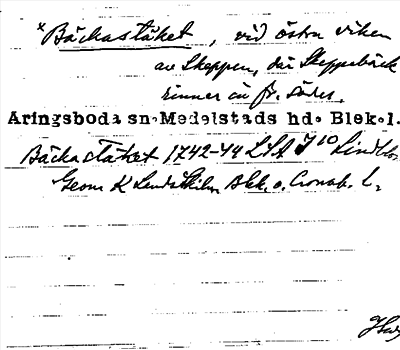 *Bäckastäket, vid östra viken
av Skeppen, där Skeppebäck
rinner in fr. söder.
Aringsboda sn. Medelstads hd. Blek.l.
Bäckastäket 1742-44 LSA J10
Geom K Blek. o. Cronob. l.